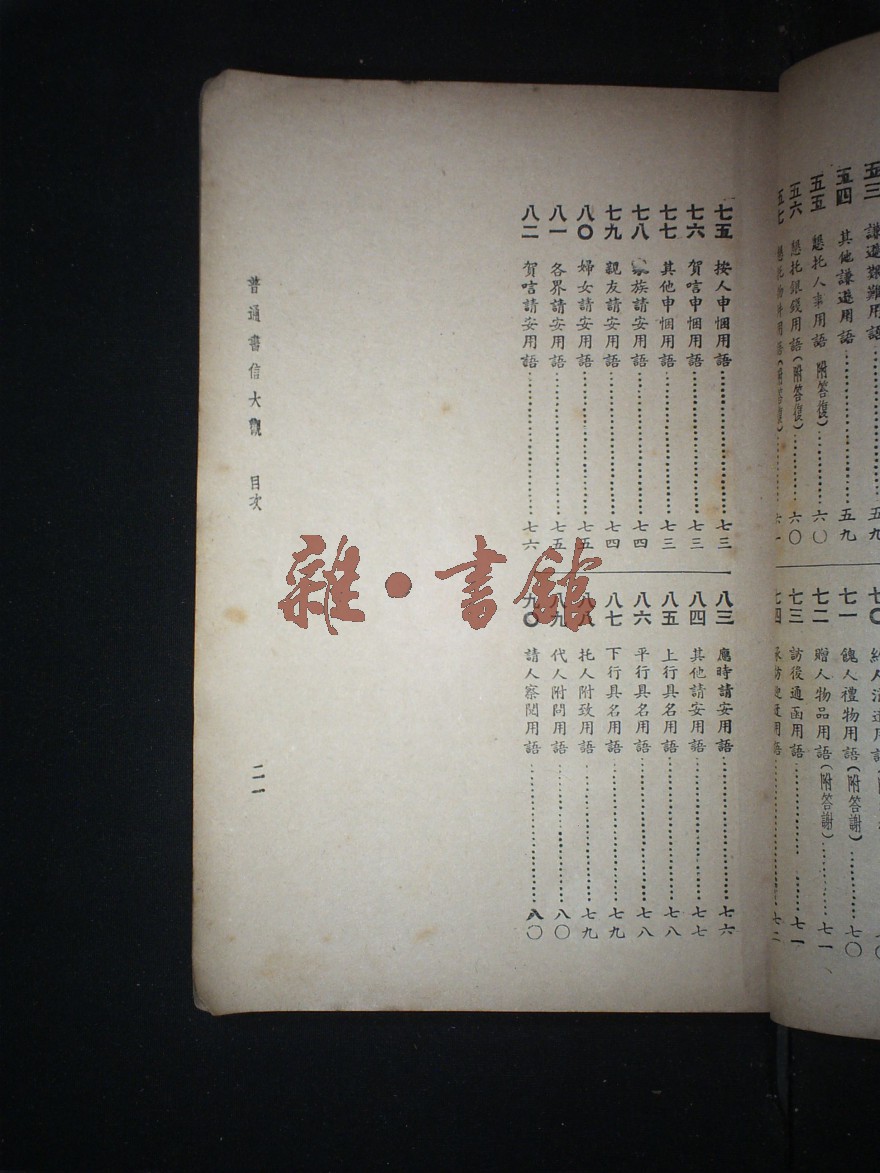 五三 謙遜艱難用語……五九
五四 其他謙遜用語……五九
五五 懇托人事用語(附答復)……六〇
五六 懇托銀錢用語(附答復)……六〇
五七 懇托物件用語(附答復)……六一
七〇
七一 餽人禮物用語(附答謝)……七〇
七二 贈人物品用語(附答謝)……七一
七三 訪後通函用語……七一
七四 用語……七二
七五 按人申悃用語……七三
七六 賀唁申悃用語……七三
七七 其他申悃用語……七三
七八 家族請安用語……七四
七九 親友請安用語……七四
八〇 婦女請安用語……七五
八一 各界請安用語……七五
八二 賀唁請安用語……七六
八三 應時請安用語……七六
八四 其他請安用語……七七
八五 上行具名用語……七八
八六 平行具名用語……七八
八七 下行具名用語……七九
八八 托人附致用語……七九
八九 代人附問用語……八〇
九〇 請人察閱用語……八〇
普通書信大觀 目次
二一
雜·書館